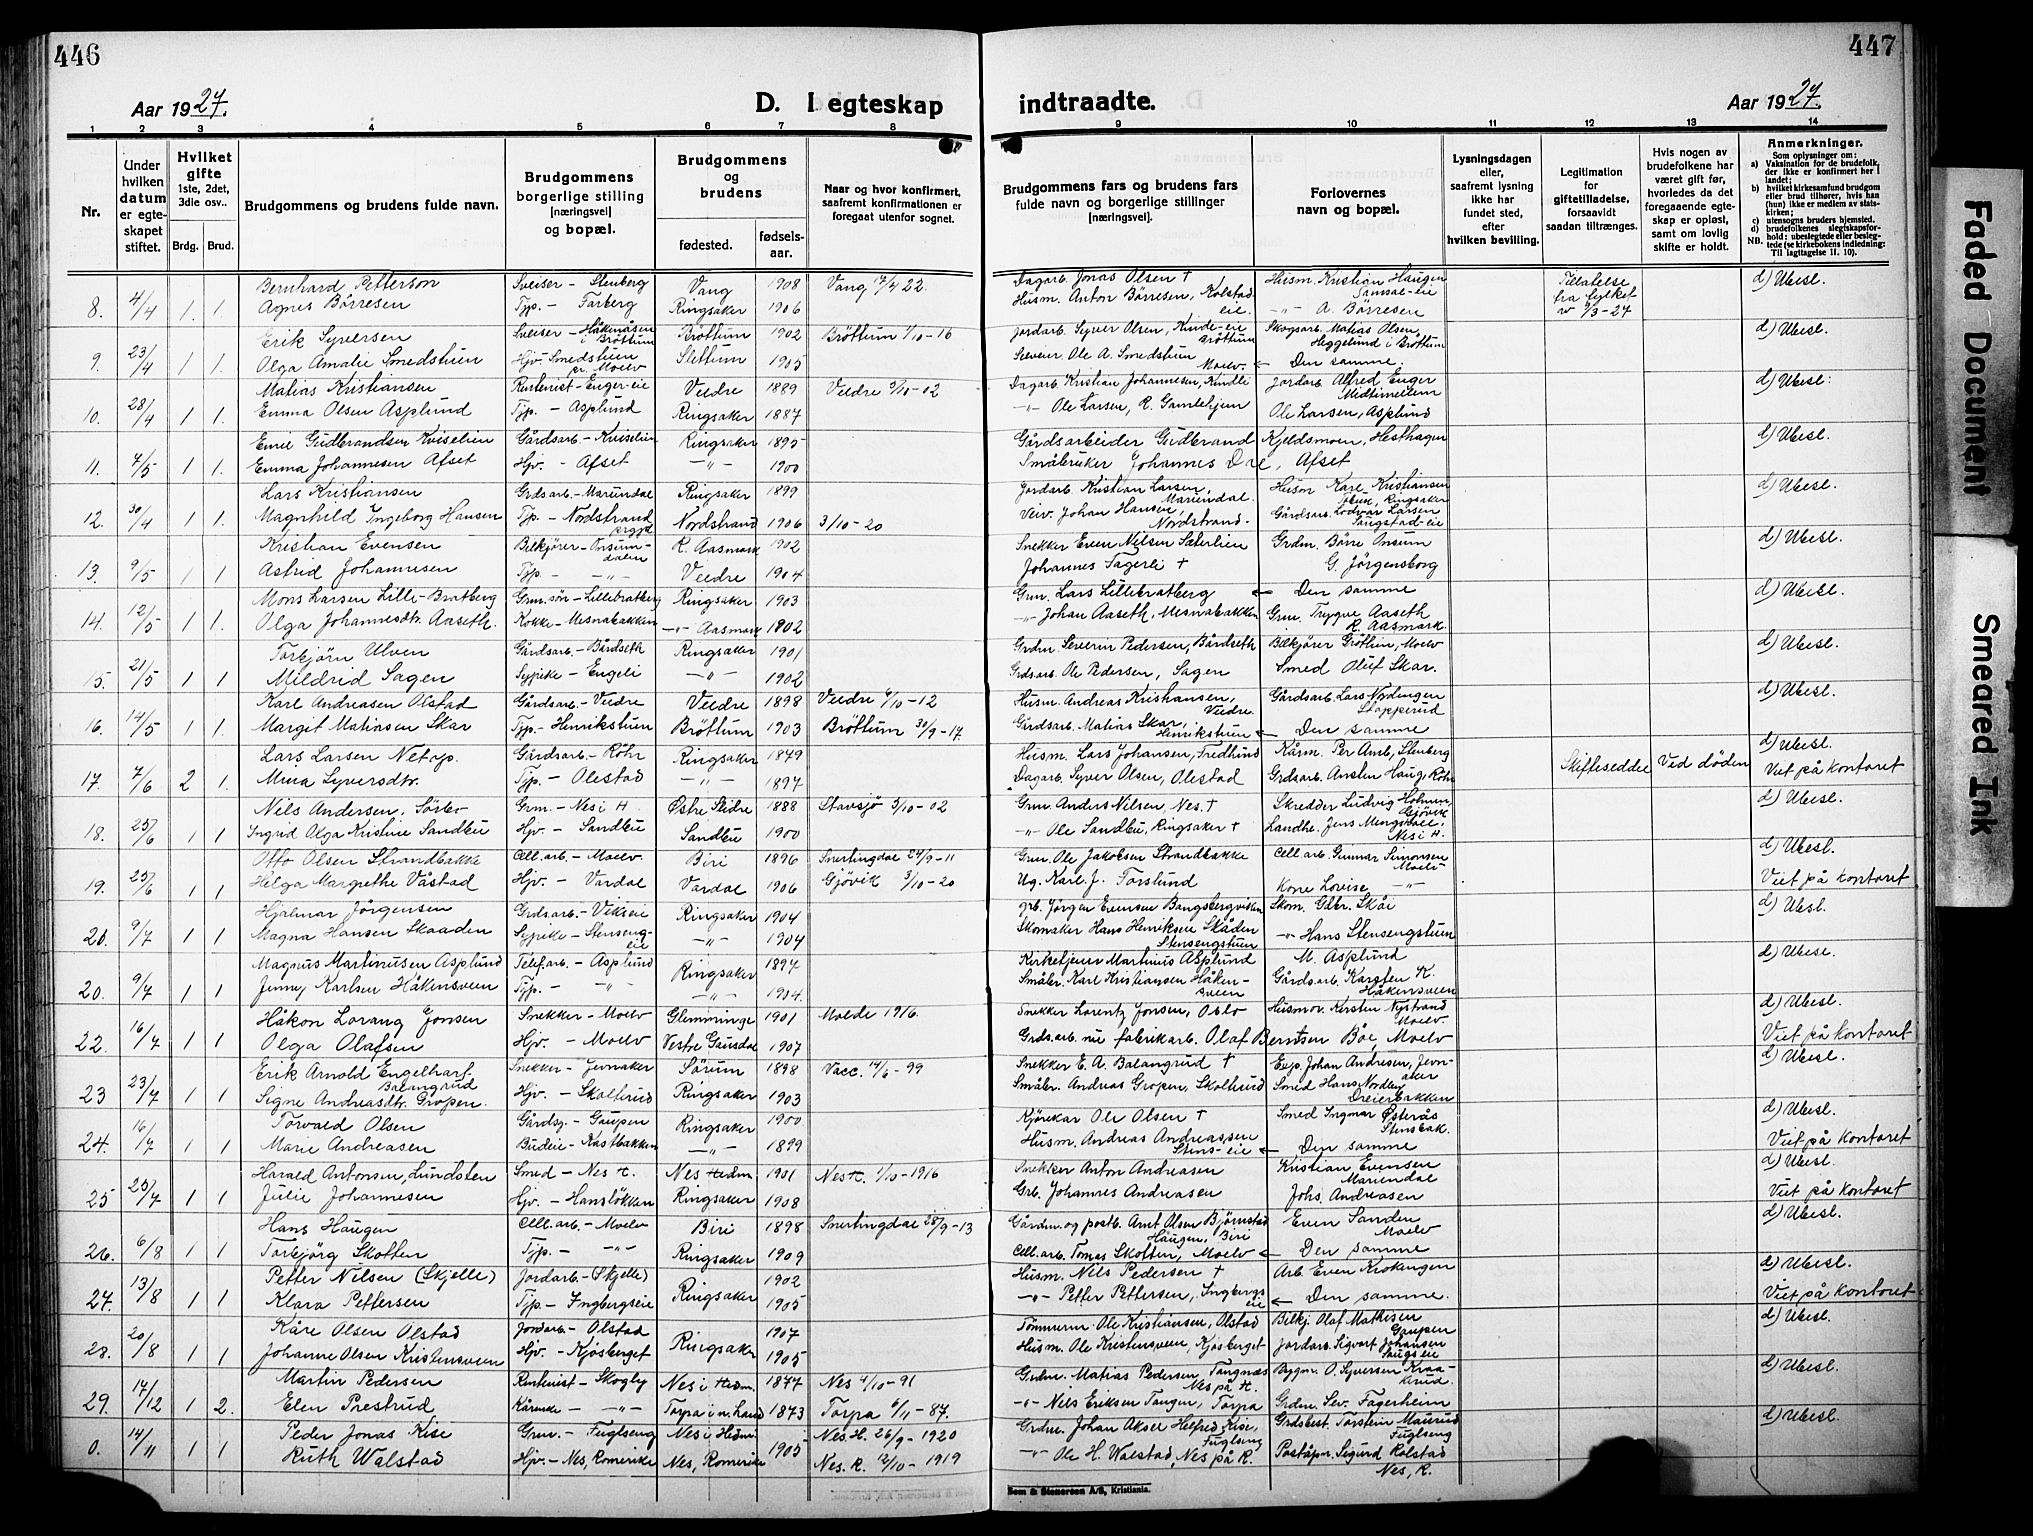 446
447
Aar 1927.
D. I egteskap
indtraadte.
Aar 1927.
1 2 3 4 5 6 7 8 9 10 11 12 13 14
Nr.
Under hvilken datum er egteskapet stiftet.
Hvilket gifte 1ste, 2det, 3die osv..
Brdg. Brud.
Brudgommens og brudens fulde navn.
Brudgommens borgerlige stilling [næringsvei] og bopæl.
Brudgommens og brudens
fødested. fødselsaar.
Naar og hvor konfirmert, saafremt konfirmationen er foregaat utenfor sognet.
Brudgommens fars og brudens fars fulde navn og borgerlige stillinger [næringsvei].
Forlovernes navn og bopæl.
Lysningsdagen eller, saafremt lysning ikke har fundet sted, efter hvilken bevilling.
Legitimation for giftetilladelse, forsaavidt saadan tiltrænges.
Hvis nogen av brudefolkene har været gift før, hvorledes da det foregaaende egteskap er opløst, samt om lovlig skifte er holdt.
Anmerkninger.
Som oplysninger om:
a) Vaksination for de brudefolk, der ikke er konfirmert her i landet;
b) hvilket kirkesamfund brudgom eller brud tilhører, hvis han (hun) ikke er medlem av statskirken;
c) utensogns bruders hjemsted.
d) brudefolkenes slegtskapsforhold: ubeslegtede eller beslegtede (se kirkebokens indledning:
NB. Til Iagttagelse II. 10).
Bernhard Petterson Sveiser - Stenberg Vang 1908 Vang 17/4 22. Dagarb. Jonas Olsen † Husm. Kristian Haugen Samsal-eie Tillatelse fra fylket d) Ubesl.
8. 4/4 1. 1. Agnes Börresen Tjp. - Farberg Ringsaker 1906 Husm. Anton Börresen, Kolstad eie. -"- A. Börresen
Erik Syversen Sveiser - Håkenåsen i Bröttum Bröttum 1902 Bröttum 1/10-16 Jordarb. Syver Olsen, Kinde-eie Bröttum Skogsarb. Matias Olsen, Heggelund i Bröttum d) Ubesl.
9. 23/4 1 1. Olga Amalie Smedstuen Hjv.-Smedstuen pr. Moelv Slettum 1905 Ole A. Smedstuen Moelv. ← Den samme.
Matias Kristiansen Rentenist - Enger-eie Veldre 1889 Veldre 5/10-02 Dagarb. Kristian Johannesen, Kindli Jordarb. Alfred Enger d) Ubesl.
10. 28/4 1 1. Emma Olsen Asplund Tjp. - Asplund Ringsaker 1887 -"- Ole Larsen, R. Gamlehjem Ole Larsen, Asplund
Emil Gudbrandsen Kviselien Gårdsarb - Kviselien Ringsaker 1895 Gårdsarbeider Gudbrand Kjeldsmoen, Hesthagen d) Ubesl.
11. 7/5 1 1. Emma Johannesen Afset Hjv. - Afset -"- 1900 Småbruker Johannes Dal, Afset
Lars Kristiansen Grdsarb. - Marundal Ringsaker 1899 Jordarb. Kristian Larsen, Mariendal. Husm Karl Kristiansen Ringsaker d) Ubesl.
12. 30/4 1 1. Magnhild Ingeborg Hansen Tjp. - Nordstrand Nordstrand 1906 3/10-20 Veiv. Johan Hansen, Nordstrand. Gårdsarb. Lodvar Larsen Saugstad-eie
Kristian Evensen Bilkjører - Onsumdalen R. Aasmark 1902 Snekker Even Nilsen Sæterlien Grdm. Börre Onsum d) Ubesl.
13. 9/5 1 1 Astrid Johannesen Tjp. - -"- Veldre 1904 Johannes Fagerli † G. Jörgensborg
Mons Larsen Lille-Bratberg Grm. sön - Lillebratberg Ringsaker 1903 Grm. Lars Lillebratberg ← Den samme d) Ubesl.
14. 12/5 1 1. Olga Johannesdtr. Aaseth. Kokke - Mesnabakken -"- Aasmark 1802 -"- Johan Aaseth, Mesnabakken Grm. Trygve Aaseth R. Aasmark.
Torbjörn Ulven Gårdsarb - Bårdseth Ringsaker 1901 Grdm Severin Pedersen, Bårdseth Bilkjører Gröthun, Moelv d) Ubesl.
15. 21/5 1 1 Mildrid Sagen Sypike - Engeli -"- 1902 Grds.arb. Ole Pedersen, Sagen Smed Oluf Skar.
Karl Andreasen Olstad Gårdsarb. - Veldre Veldre 1898 Veldre 6/10-12 Husm. Andreas Kristiansen, Veldre. Gårdsarb. Lars Nordengen Stopperud d) Ubesl.
16. 14/5 1 1. Margit Matiasen Skar Tjp.- Henrikstuen Bröttum 1903 Bröttum 30/9-17. Gårdsarb. Matias Skar, Henrikstuen ← Den samme
Lars Larsen Netop. Gårdsarb - Röhr Ringsaker 1879 Husm. Lars Johansen, Fredlund Kårm. Per Amb, Stenberg Skifteseddel Ved döden d) Ubesl.
17. 7/6 2 1. Mina Syversdtr. Tjp. - Olestad -"- 1897 Dagarb. Syver Olsen, Olestad Grdsarb. Ansten Haug, Röhr Viet på kontoret
Nils Andersen, Sörby Grm. - Nes i H. Østre Slidre 1888 Stavsjö 3/10-02 Grm Anders Nilsen, Nes. † Skredder Ludvig Holmen, Gjövik d) Ubesl.
18. 25/6 1 1 Ingrid Olga Kristine Sandbu Hjv. - Sandbu Sandbu 1900 -"- Ole Sandbu, Ringsaker † Landhr. Jens Mengshoel, Nes i H.
Otto Olsen Strandbakke Cell.arb. - Moelv Biri 1896 Snertingdal 24/9-11 Grm. Ole Jakobsen Strandbakke Cell.arb. Gunnar Simonsen Moelv d) Ubesl.
19. 25/6 1 1 Helga Margrethe Våstad Hjv. - Vardal Vardal 1906 Gjövik 3/10-20 Ug. Karl J. Forslund Kone Lovise -"- Viet på kontoret
Hjalmar Jörgensen Grdsarb. - Vikseie Ringsaker 1904 Jörgen Evensen Bangsbergviken Skom. Gdbr. Skåi d) Ubesl.
20. 9/7 1 1 Magna Hansen Skaaden Sypike - Stensengeie -"- 1904 Skomaker Hans Henriksen Skåden Stensengstuen -"- Hans Stensengstuen
Magnus Martinusen Asplund Telef.arb. - Asplund Ringsaker 1897 Kirketjener Martinius Asplund M. Asplund d) Ubesl.
20. 9/7 1 1 Jenny Karlsen Håkensveen Tjp. - -"- -"- 1904. Småbr. Karl Kristiansen Håkensveen Gårdsarb. Karsten K. Håkensveen
Håkon Lorang Jonsen Snekker - Moelv Glemminge 1901 Molde 1916. Snekker Lorentz Jonsen, Oslo Husmor. Kirsten Nystrand Moelv. d) Ubesl.
22. 16/7 1 1 Olga Olafsen Hjv. - Moelv Vestre Gausdal 1907 Grds.arb. nu fabrikarb. Olaf Berntsen Böe, Moelv Viet på kontoret
Erik Arnold Engelhart Balangrud Snekker - Jevnaker Sörum 1898 Vacc. 14/6-99 Snekker E. A. Balangrud † Exp. Johan Andresen, Jevnaker d) Ubesl.
23 23/7 1 1 Signe Andreasdtr. Gropen. Hjv. - Skolterud Ringsaker 1903 Småbr. Andreas Gropen, Skolterud Smed Hans Nordby Dreierbakken
Torvald Olsen Gårdsg. - Gaupen Ringsaker 1900 Kjörekar Ole Olsen † Smed Ingmar Österås Stensbak. d) Ubesl.
24. 16/7 1 1 Marie Andreasen Budeie - Kastbakken -"- 1899 Husm. Andreas Andreassen Stens-eie ← Den samme Viet på kontoret
Harald Antonsen, Lundsten Smed - Nes H. Nes Hedm. 1901 Nes H. 1/10-1916 Snekker Anton Andreasen Kristian Evensen Mariendal d) Ubesl.
25 25/7 1 1 Julie Johannesen Hjv. - Hanslökken Ringsaker 1908 Grb. Johannes Andreasen Johs. Andreasen Viet på kontoret
Hans Haugen Cell. arb. - Moelv Biri 1898 Snertingdal 28/9-13 Gårdm. og postb. Amt Olsen Björnstad Haugen, Biri Even Sanden Moelv d) Ubesl.
26. 6/8 1 1 Torbjörg Skotten Tjp. - -"- Ringsaker 1909 Cell.arb. Tomas Skotten, Moelv ← Den samme
Petter Nilsen (Skjelle) Jordarb. - (Skjelle) Ringsaker 1902 Husm. Nils Pedersen † Arb. Even Krokengen d) Ubesl.
27. 13/8 1 1 Klara Pettersen Tjp. - Ingbergseie 1905 -"- Petter Pettersen, Ingbergseie ← Den samme. Viet på kontoret
Kåre Olsen Olstad Jordarb. - Olstad Ringsaker 1907 Tömmerm. Ole Kristiansen, Olstad Bilkj. Olaf Mathisen Gaupen d) Ubesl.
28. 20/8 1 1 Johanne Olsen Kristensveen Hjv. - Kjösberget 1905 Husm. Ole Kristensveen, Kjösberget Jordarb. Sigvart Johansen
Martin Pedersen Rentenist - Skogly Nes i Hedm. 1877 Nes 4/10-91 Grdm. Matias Pedersen, Tangnæs Nes på H. Bygm. O. Syversen d) Ubesl.
29. 17/12 1 2. Elen Prestrud Kårenke - -"- Torpa i n. Land 1873 Torpa 6/11-87. -"- Nils Eriksen Tangen, Torpa Grdm. Sev. Fagerheim
Peder Jonas Kise Grm. - Fuglseng Nes i Hedm. 1905 Nes. H. 26/9-1920 Grdm. Johan Aksel Helfred Kise, Fuglseng Grdsbest. Torstein Maurud Fuglseng d) Ubesl.
0. 14/11 1 1 Ruth Walstad Hjv. - Nes, Romerike Nes, Romerike Nes. R. 12/10-1919 -"- Ole H. Walstad, Nes på R. Poståpn. Sigurd Rolstad Nes, R.
Sem & Stenersen A/S, Kristiania.
Faded Document
Smeared Ink